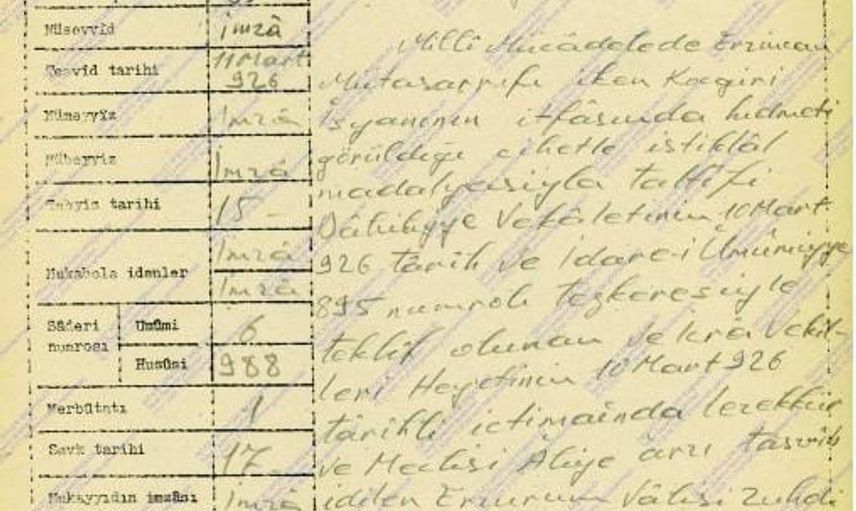 Müsevvid İmzâ
Tesvid tarihi 11 Mart 926
Mümeyyiz İmzâ
Mübeyyiz İmzâ
Tebyiz tarihi 15
Mukabele idenler İmzâ
İmzâ
Sâderi numrosı Umûmi 6
Husûsi 988
Merbûtatı 1
Sevk tarihi 17
Mukayyıdın imzâsı İmzâ
Millî Mücâdelede Erzincan
Mutasarrıfı iken Koçgiri
İsyanının itfâsında hidmeti
görüldiği cihetle istiklâl
madalyasiyla taltîfi
Dâhiliyye Vekâletinin 10 Mart
926 târih ve İdare-i Umûmiyye
895 numrolı tezkeresiyle
teklîf olunan ve İcrâ Vekil-
leri Heyetinin 10 Mart 926
târihli ictimaında tezekkür
ve Meclisi Âliye arzı tasvîb
idilen Erzurum Vâlisi Zühdi